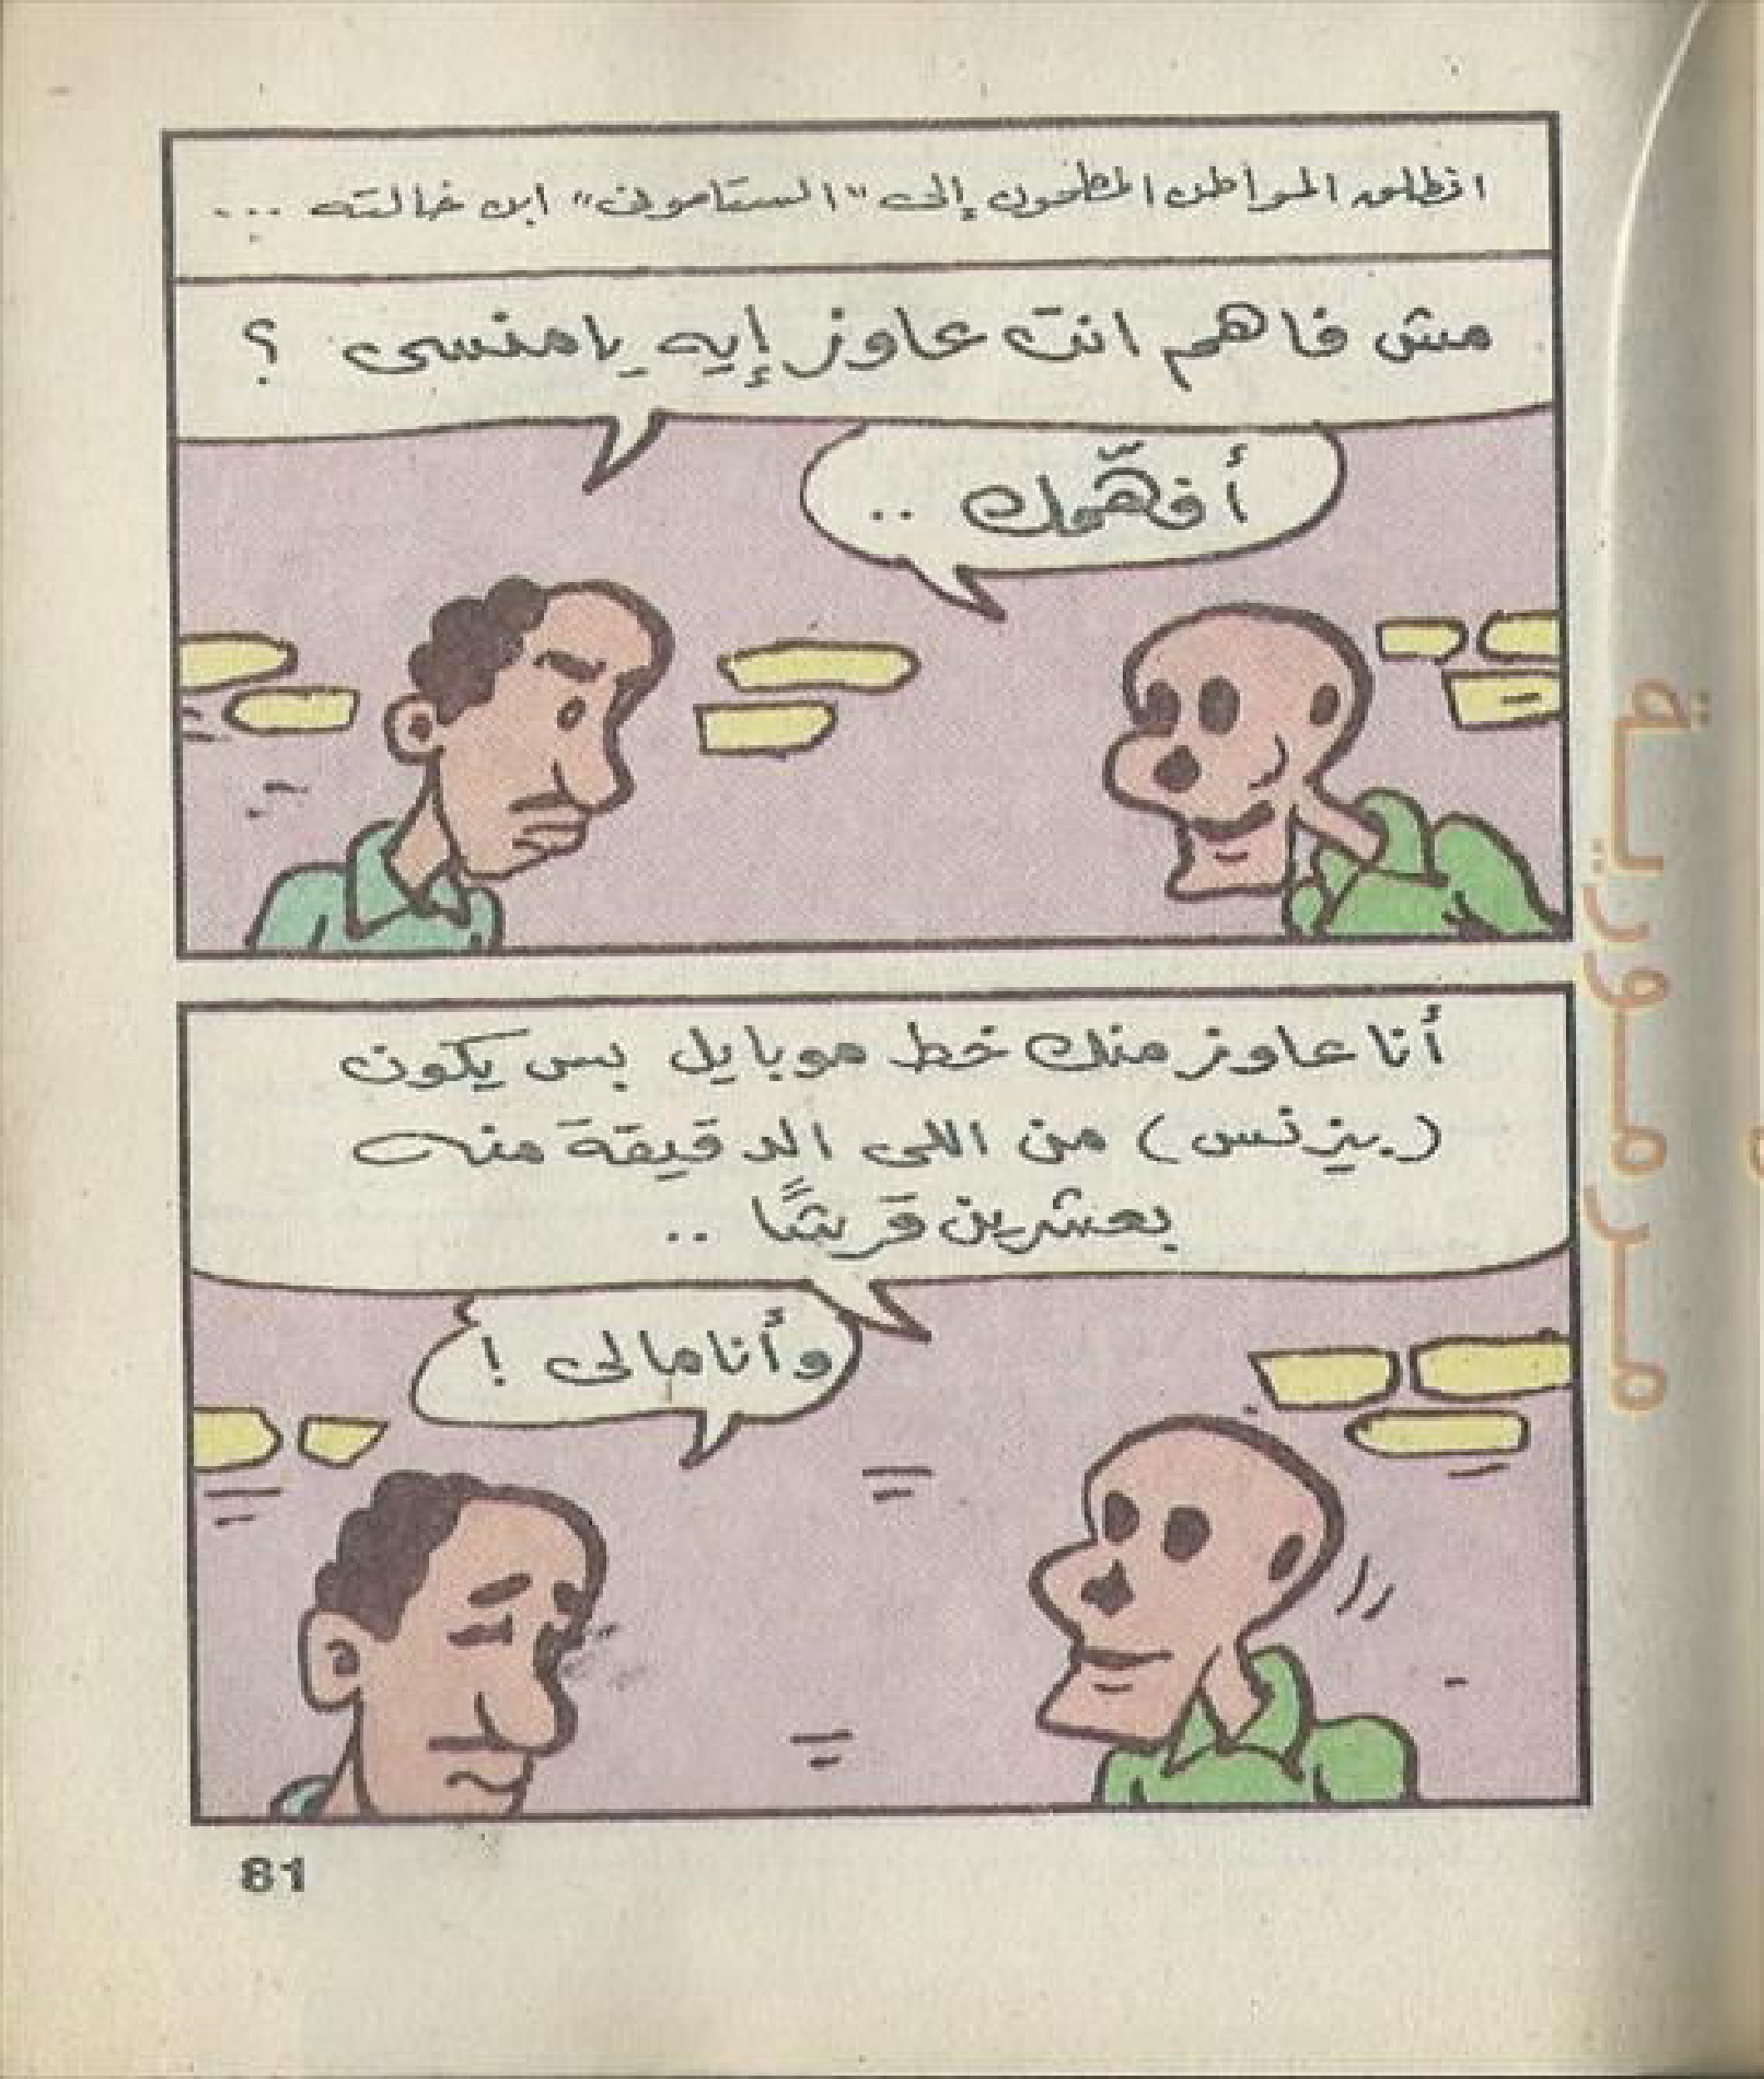 انطلق المواطن المطحون إلى "الستاموني" ابن خالته ...
مش فاهم انت عاوز إيه يا منسى ؟
أفهّمك ..
أنا عاوز منك خط موبايل بس يكون
(بيزنس) من اللى الدقيقة منه
بعشرين قرشًا ..
وأنا مالى !
81
مرمورية